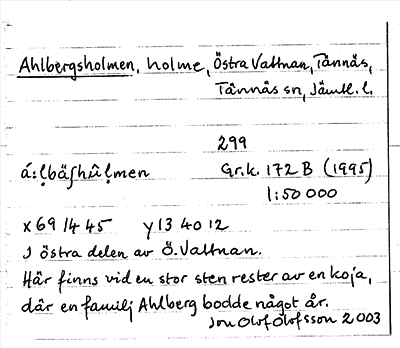 Ahlbergsholmen, holme, Östra Vattnan, Tännäs,
Tännäs sn, Jämtl. l.
299
Gr.k. 172 B (1995)
1:50 000
x 69 14 45 y 13 40 12
I östra delen av Ö. Vattnan.
Här finns vid en stor sten rester av en koja,
där en familj Ahlberg bodde något år.
Jon Olof Olofsson 2003